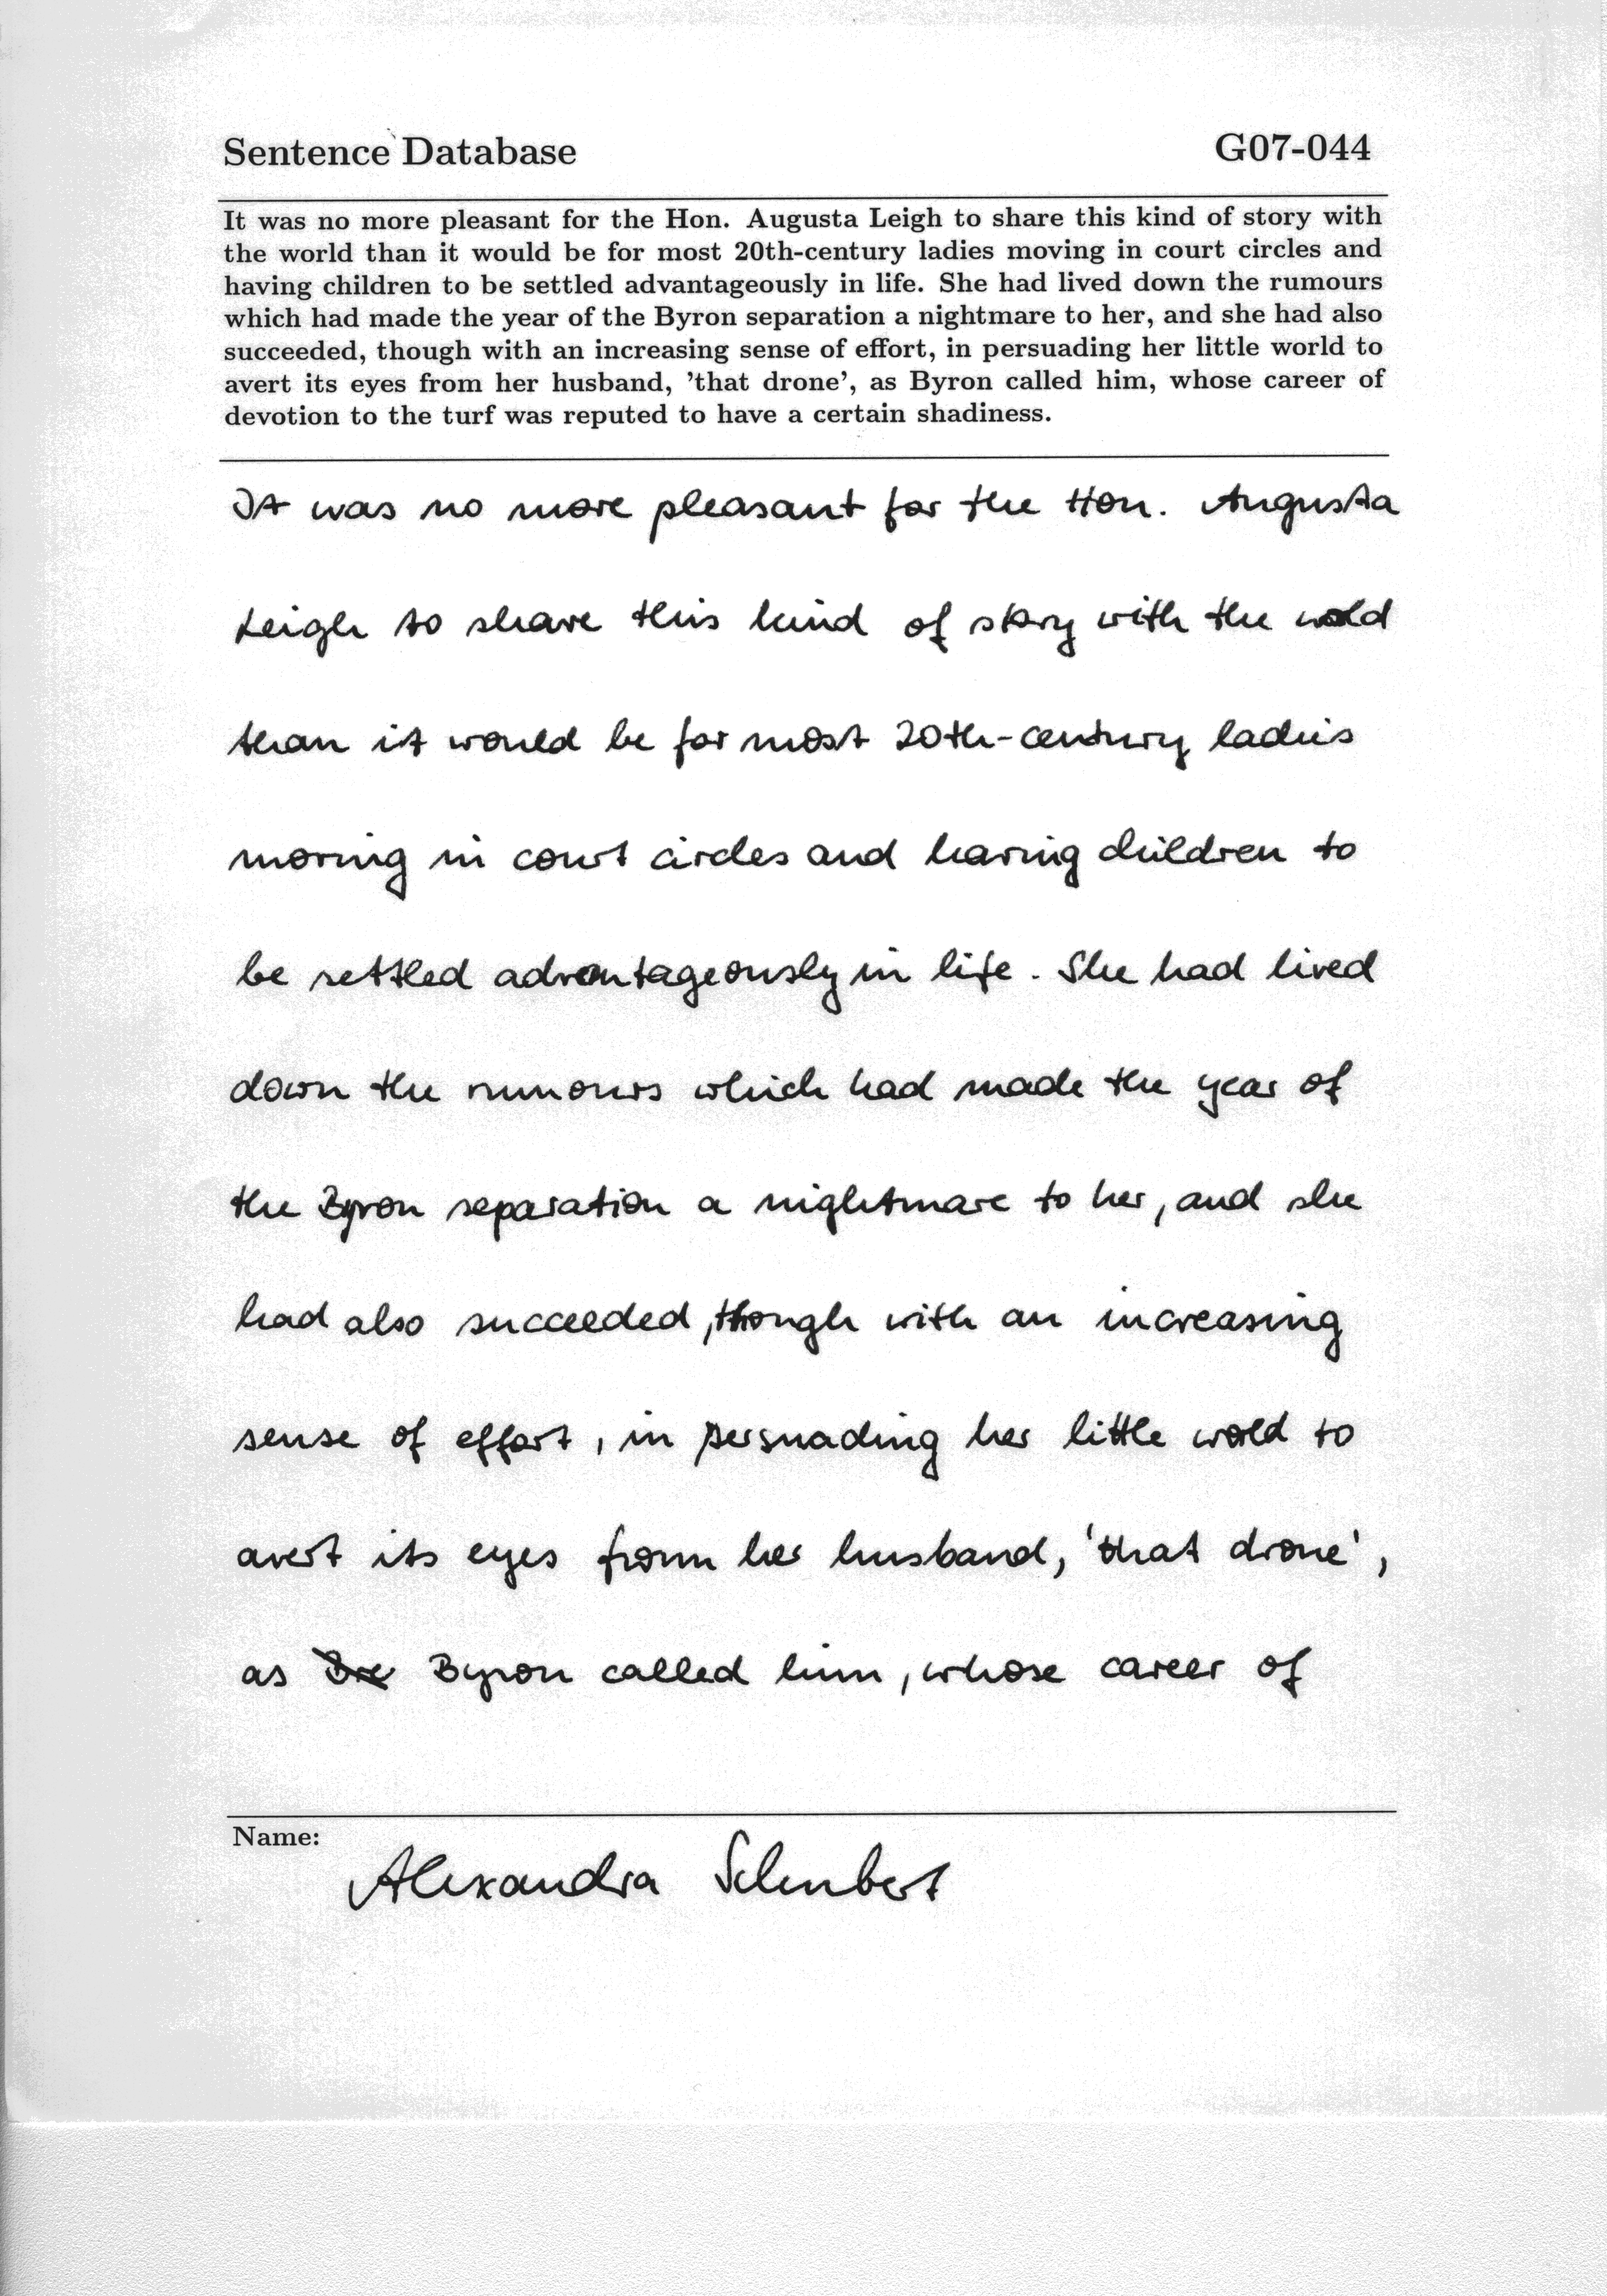 Sentence Database G07-044
It was no more pleasant for the Hon. Augusta Leigh to share this kind of story with
the world than it would be for most 20th-century ladies moving in court circles and
having children to be settled advantageously in life. She had lived down the rumours
which had made the year of the Byron separation a nightmare to her, and she had also
succeeded, though with an increasing sense of effort, in persuading her little world to
avert its eyes from her husband, 'that drone', as Byron called him, whose career of
devotion to the turf was reputed to have a certain shadiness.
It was no more pleasant for the Hon. Augusta
Leigh to share this kind of story with the world
than it would be for most 20th-century ladies
moving in court circles and having children to
be settled advantageously in life. She had lived
down the rumours which had made the year of
the Byron separation a nightmare to her, and she
had also succeeded, though with an increasing
sense of effort, in persuading her little world to
avert its eyes from her husband, 'that drone',
as Byron called him, whose career of
Name:
Alexandra Schubert